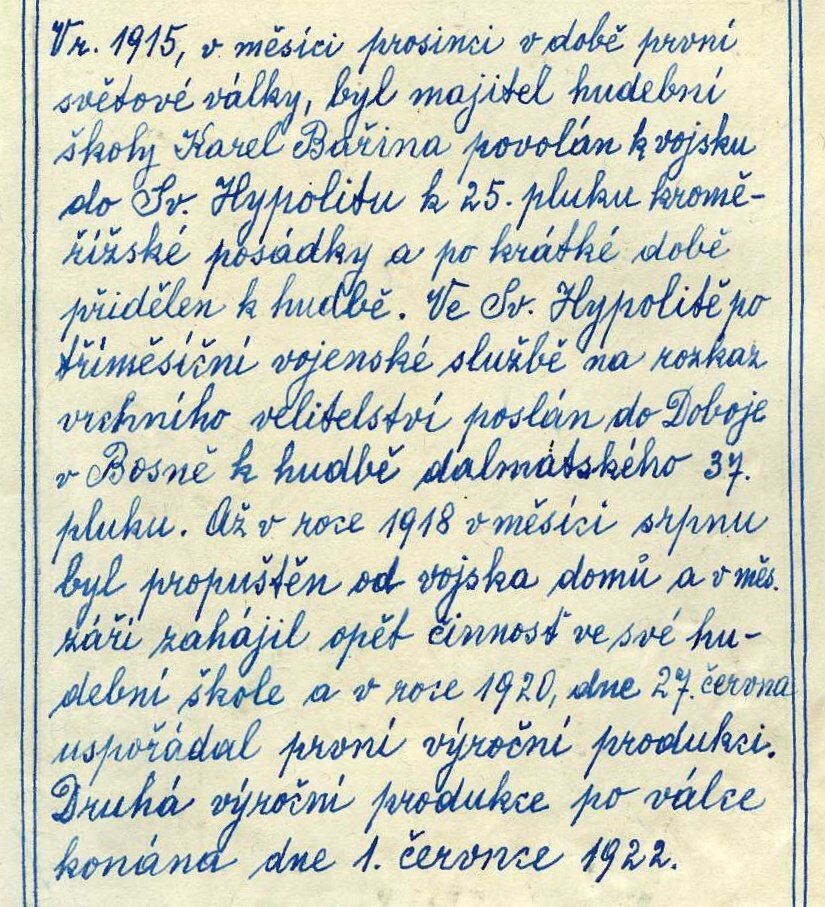 V r. 1915, v měsíci prosinci v době první
světové války, byl majitel hudební
školy Karel Bařina povolán k vojsku
do Sv. Hypolitu k 25. pluku kromě-
řížské posádky a po krátké době
přidělen k hudbě. Ve Sv. Hypolitě po
tříměsíční vojenské službě na rozkaz
vrchního velitelství poslán do Doboje
v Bosně k hudbě dalmatského 37.
pluku. Až v roce 1918 v měsíci srpnu
byl propuštěn od vojska domů a v měs.
září zahájil opět činnost ve své hu-
dební škole a v roce 1920, dne 27. června
uspořádal první výroční produkci.
Druhá výroční produkce po válce
konána dne 1. července 1922.